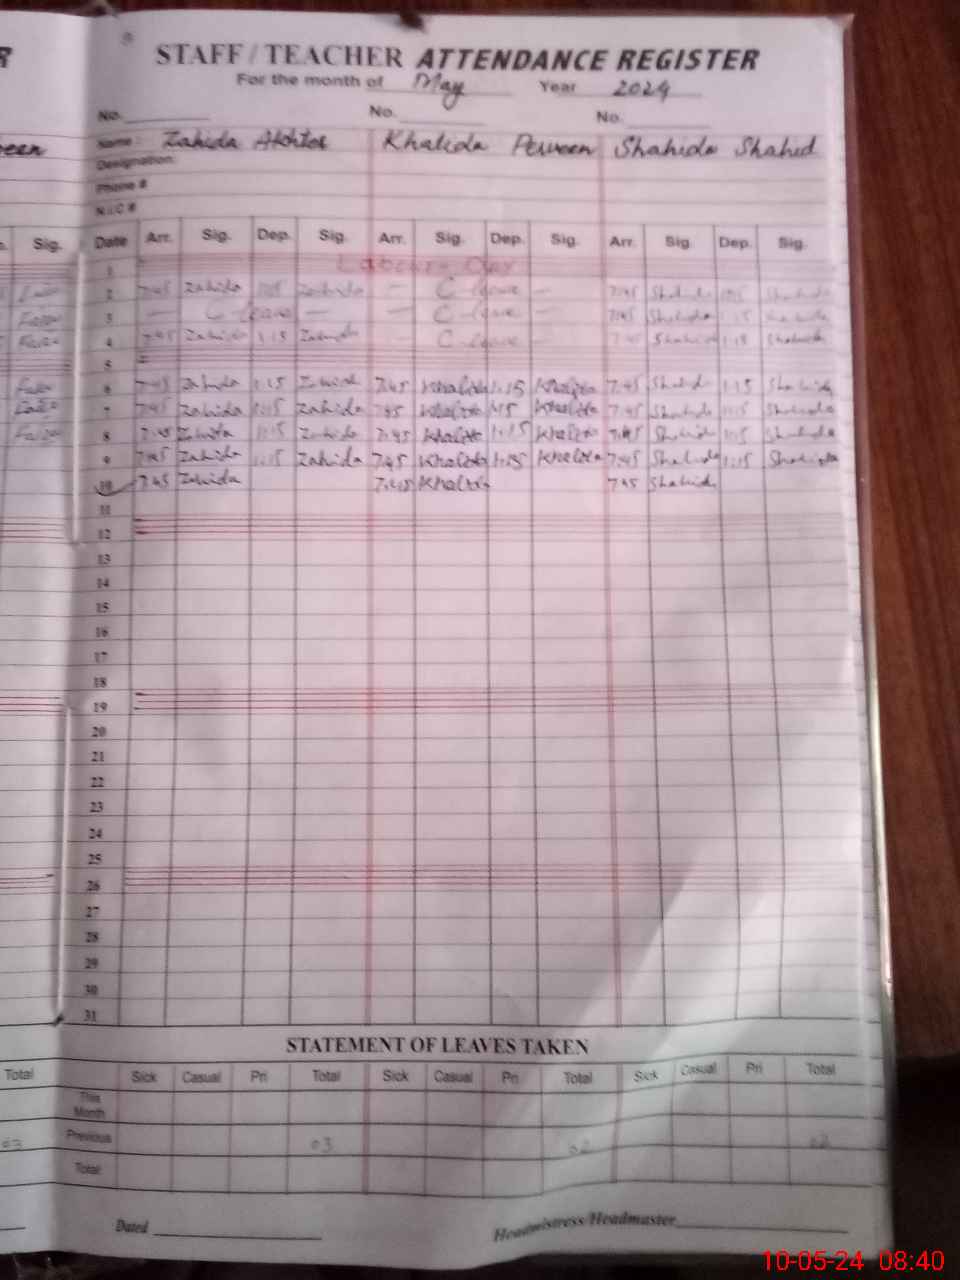 R
STAFF / TEACHER ATTENDANCE REGISTER
For the month of May Year 2024
No. No. No.
een Name : Zahida Akhter Khalida Perveen Shahida Shahid
Designation:
Phone #
N.I.C #
Sig. Date Arr. Sig. Dep. Sig. Arr. Sig. Dep. Sig. Arr. Sig. Dep. Sig.
1 Labour Day
2 7:45 Zahida 1:15 Zahida — C leave — 7:45 Shahida 1:15 Shahida
3 — C leave — — C leave — 7:45 Shahida 1:15 Shahida
4 7:45 Zahida 1:15 Zahida — C leave — 7:45 Shahida 1:15 Shahida
5
6 7:45 Zahida 1:15 Zahida 7:45 Khalida 1:15 Khalida 7:45 Shahida 1:15 Shahida
7 7:45 Zahida 1:15 Zahida 7:45 Khalida 1:15 Khalida 7:45 Shahida 1:15 Shahida
8 7:45 Zahida 1:15 Zahida 7:45 Khalida 1:15 Khalida 7:45 Shahida 1:15 Shahida
9 7:45 Zahida 1:15 Zahida 7:45 Khalida 1:15 Khalida 7:45 Shahida 1:15 Shahida
10 7:45 Zahida 7:45 Khalida 7:45 Shahida
11
12
13
14
15
16
17
18
19
20
21
22
23
24
25
26
27
28
29
30
31
STATEMENT OF LEAVES TAKEN
Total Sick Casual Pri Total Sick Casual Pri Total Sick Casual Pri Total
This Month
Previous 03 02 02
Total:
Dated Headmistress/Headmaster
10-05-24 08:40